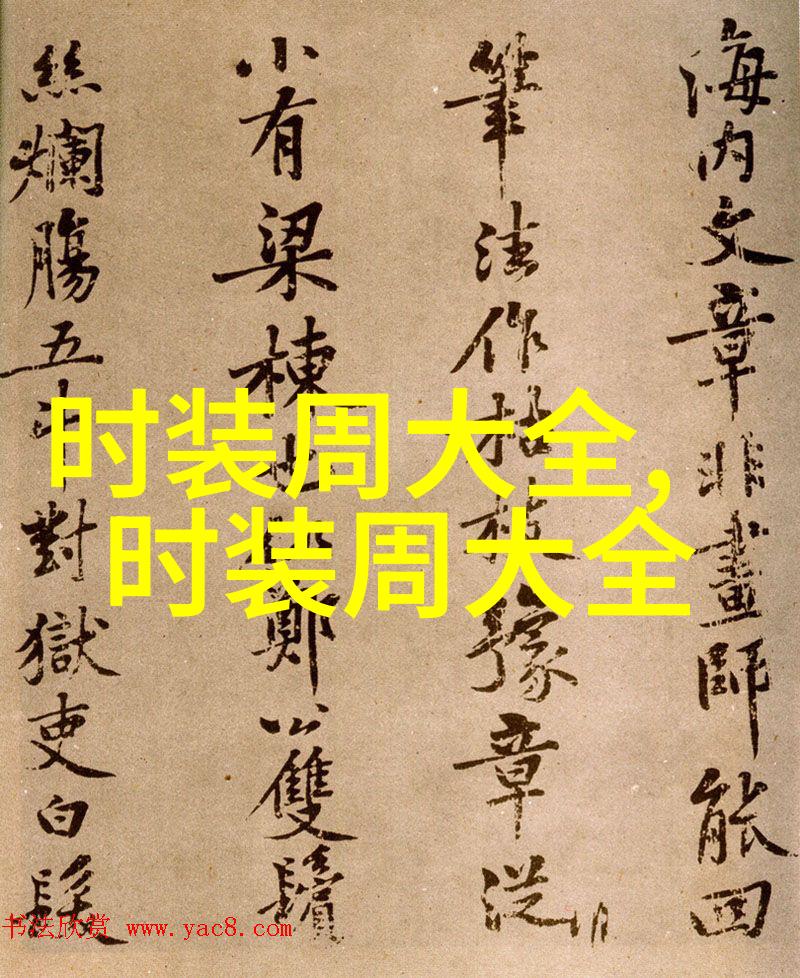 海内文章非畫師能回
筆法作枯枝豫章從
小有梁棟也似鄭公雙鬢
絲爛腸五斗對獄吏白髮
时装周大全,
时装周大全
书法欣赏 www.yac8.com